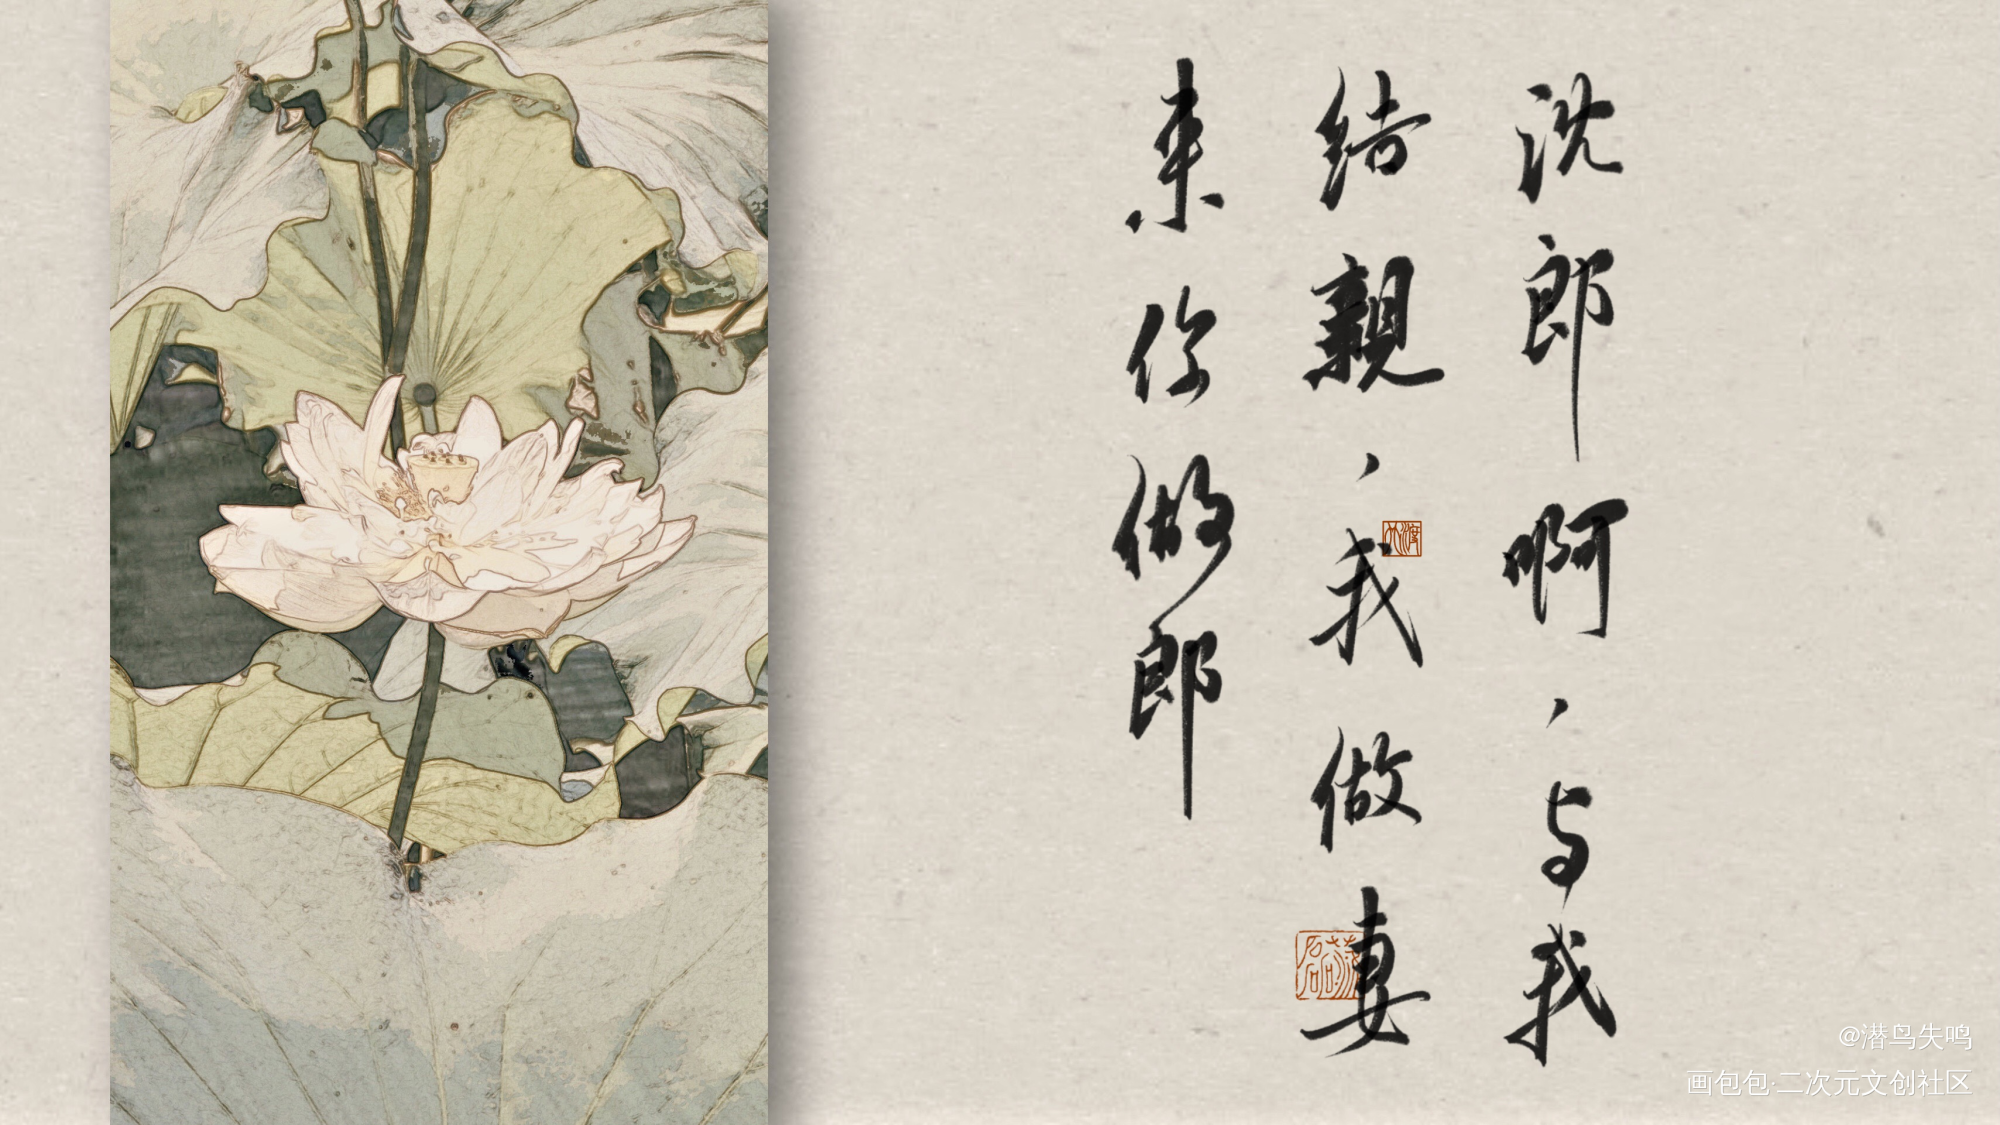 沈郎啊，与我
结親，我做妻
来你做郎
@潜鸟失鸣
画包包·二次元文创社区